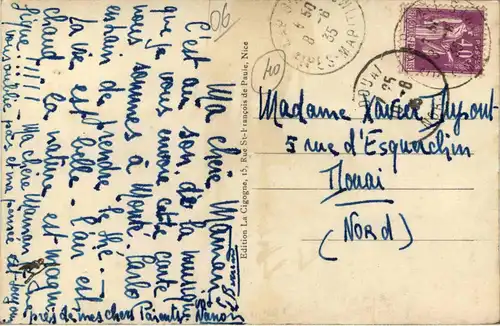 Ma chère Maman,
C'est au son de la musique
que je vous envoie cette carte
nous sommes à Monté Carlo
en train de prendre le thé -
La vie est belle - l'air est
chaud, la nature est magni
fique !!!! - Ma chère Maman
n'oublie pas et ma pensée est toujours
près de mes chers Parents - Nanon
Edition La Cigogne, 15, Rue St-François de Paule, Nice
06
40
8 -6
35
ALPES-MARITIMES
DOUAI
25 -6
Madame Xavier Dupont
5 rue d'Esquerchin
Douai
(Nord)